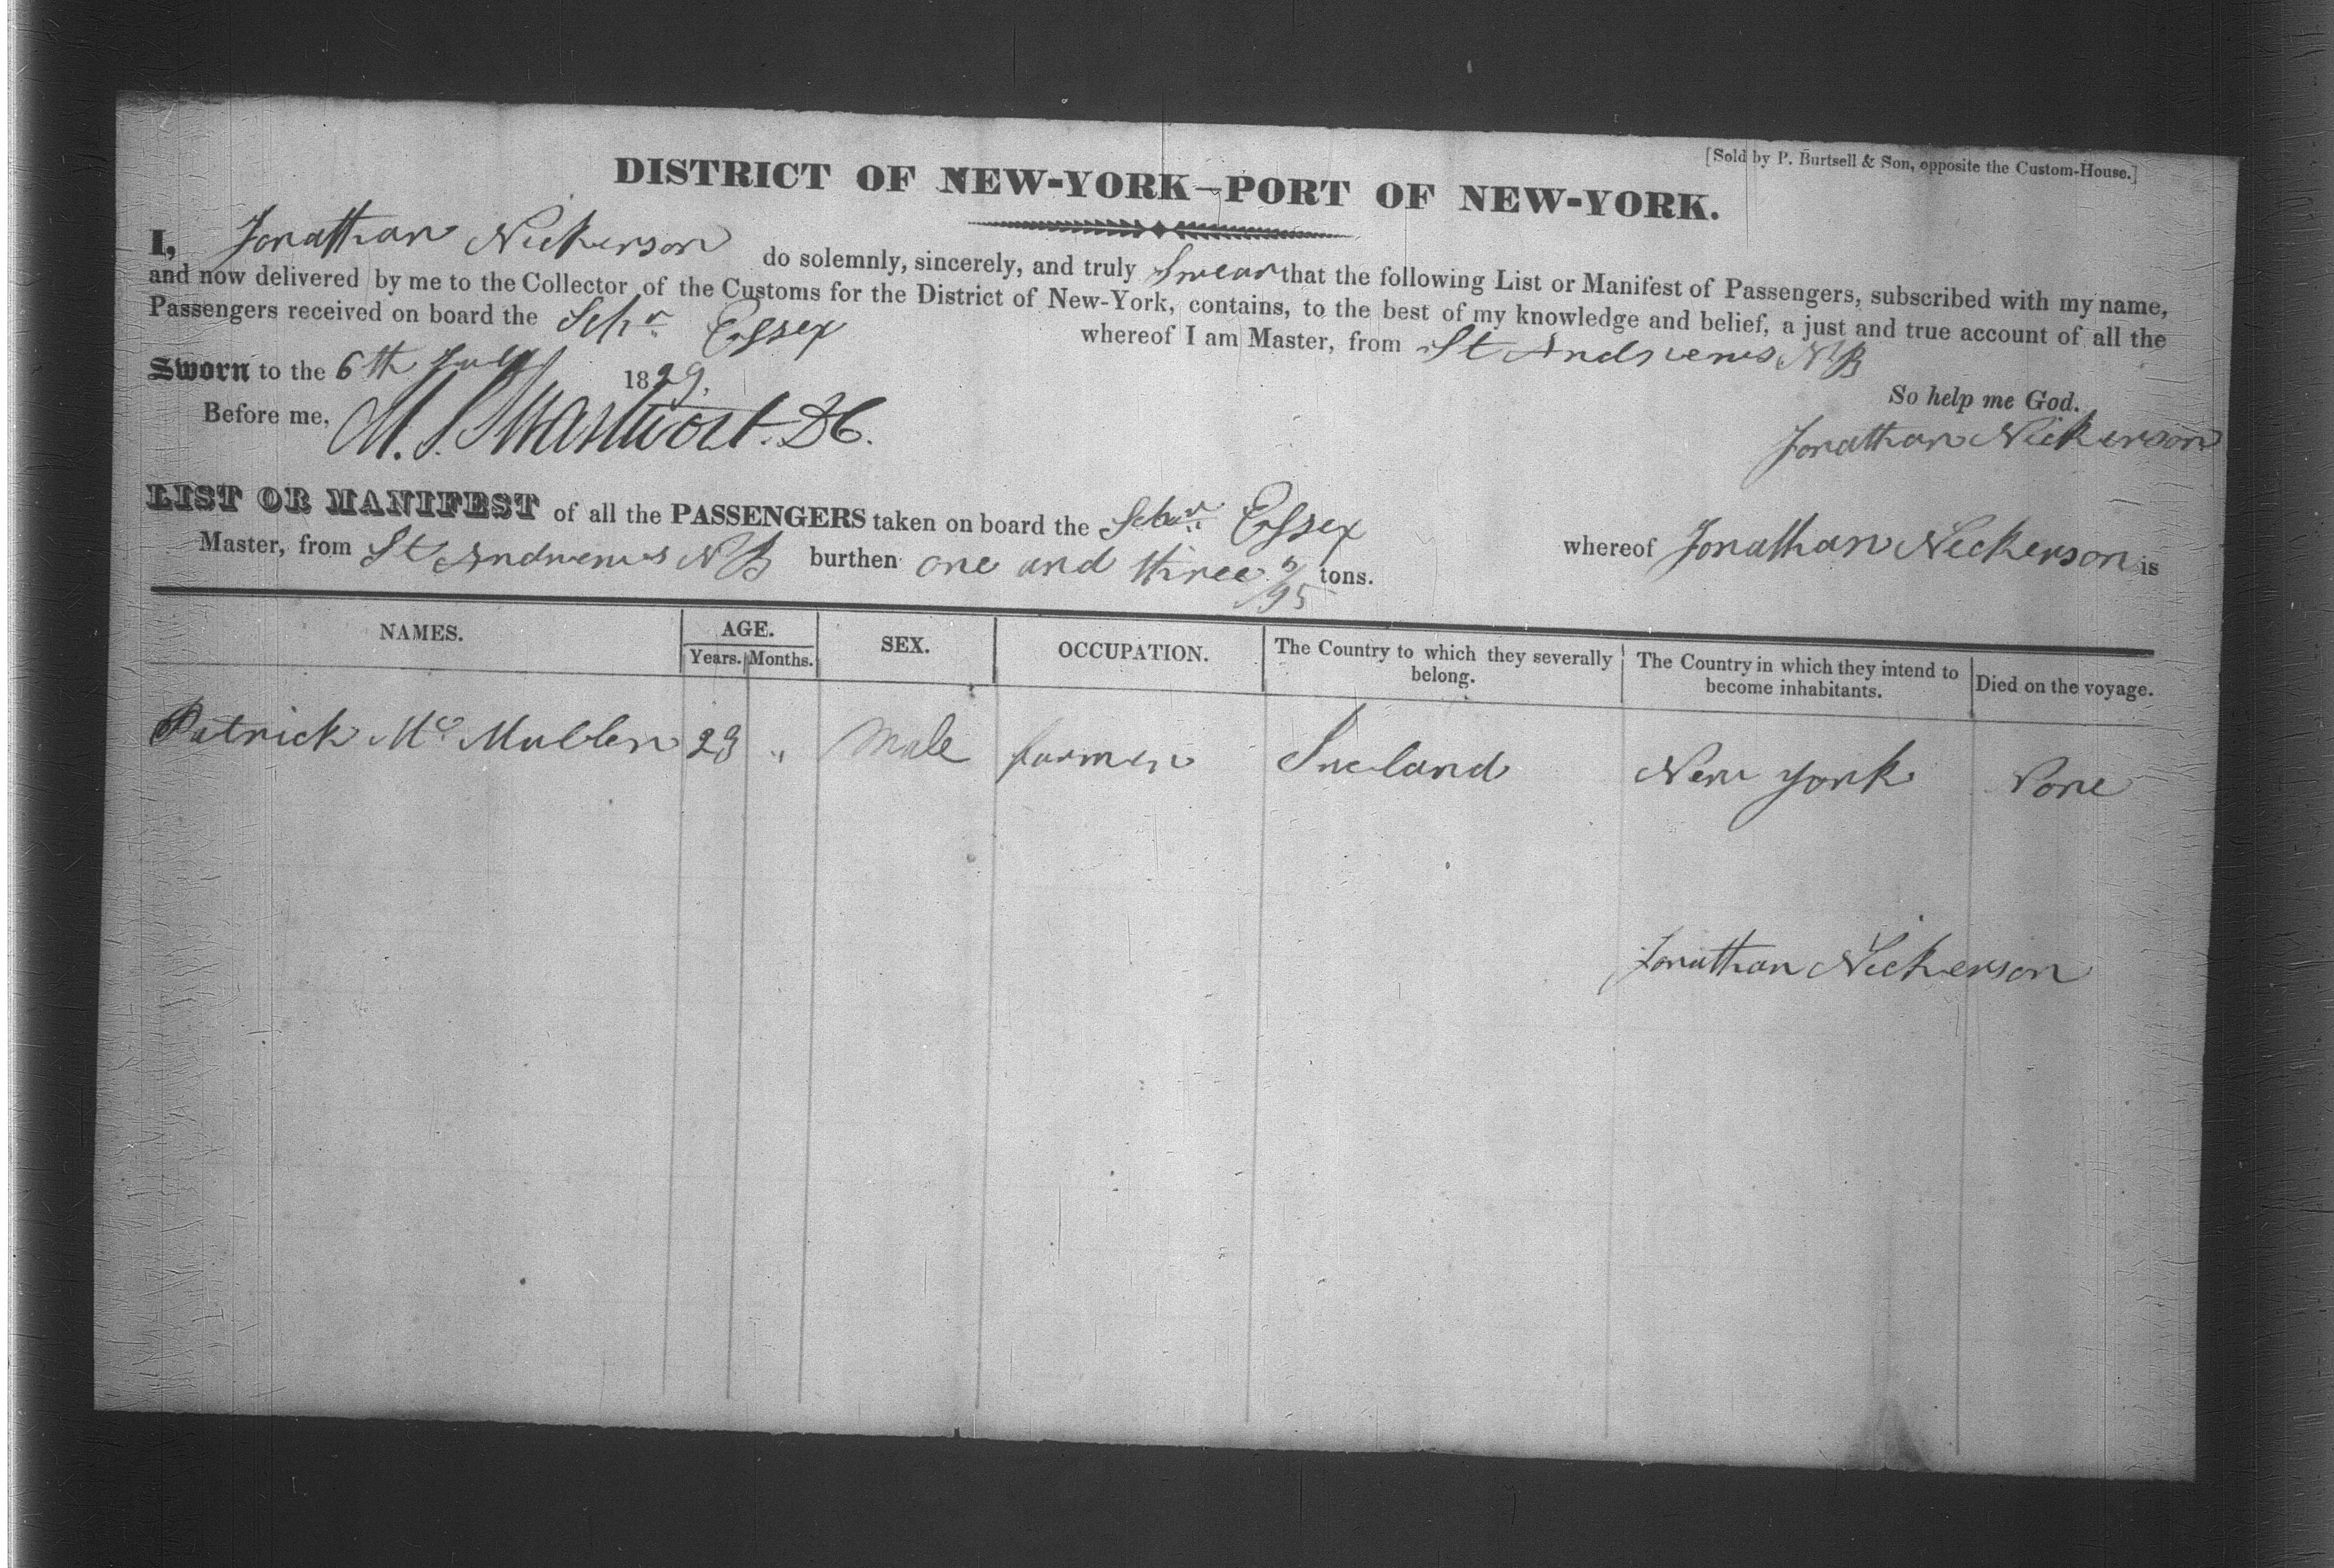 [Sold by P. Burtsell & Son, opposite the Custom-House.]
DISTRICT OF NEW-YORK—PORT OF NEW-YORK.
I, Jonathan Nickerson do solemnly, sincerely, and truly Swear that the following List or Manifest of Passengers, subscribed with my name,
and now delivered by me to the Collector of the Customs for the District of New-York, contains, to the best of my knowledge and belief, a just and true account of all the
Passengers received on board the Schr Essex whereof I am Master, from St Andrews NB
Sworn to the 6th July 1829. So help me God.
Before me, Jonathan Nickerson
LIST OR MANIFEST of all the PASSENGERS taken on board the Schr Essex whereof Jonathan Nickerson is
Master, from St Andrews NB burthen one and three /95 tons.
NAMES. AGE. SEX. OCCUPATION. The Country to which they severally belong. The Country in which they intend to become inhabitants. Died on the voyage.
Years. Months.
Patrick Mc Mullen 23 " Male farmer Ireland New York None
Jonathan Nickerson